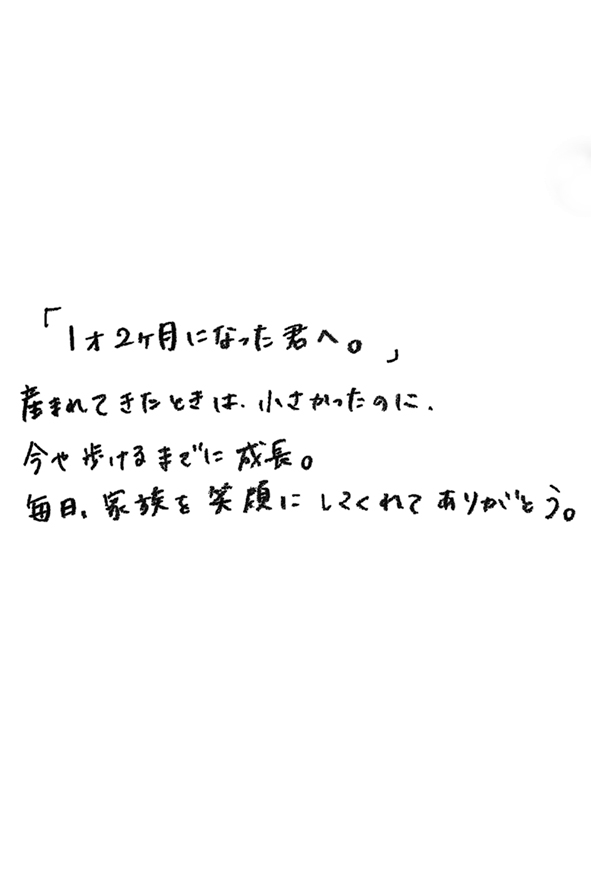 「1才2ヶ月になった君へ。」
産まれてきたときは、小さかったのに、
今や歩けるまでに成長。
毎日、家族を笑顔にしてくれてありがとう。